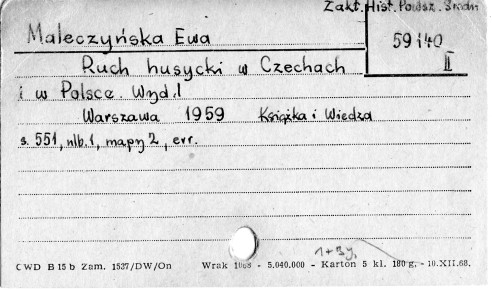 Zakt. Hist. Powsz. Średn
Maleczyńska Ewa
59140
II
Ruch husycki w Czechach
i w Polsce. Wyd. 1
Warszawa 1959 Książka i Wiedza
s. 551, nlb. 1, mapy 2, err.
1+3y.
CWD B 15 b Zam. 1527/DW/On Wrak 1068 - 5.040.000 - Karton 5 kl. 180 g. - 10.XII.68.